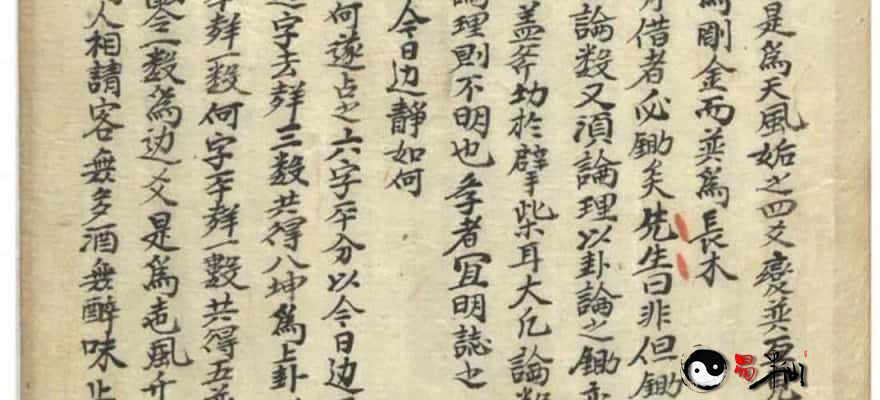 是爲天風姤之四爻變巽互見
爲剛金而巽爲長木
借者必鋤矣先生曰非但鋤
論数又須論理以卦論之鋤
盖斧切於劈柴耳大凢論数
論理則不明也斈者冝明誌也
今日边靜如何
何遂占之六字平分以今日边
字去聲三数共得八坤爲上卦
平聲一数何字平聲一數共得五巽
一数爲边爻是爲地風升
人相請客無多酒無醉味止
易